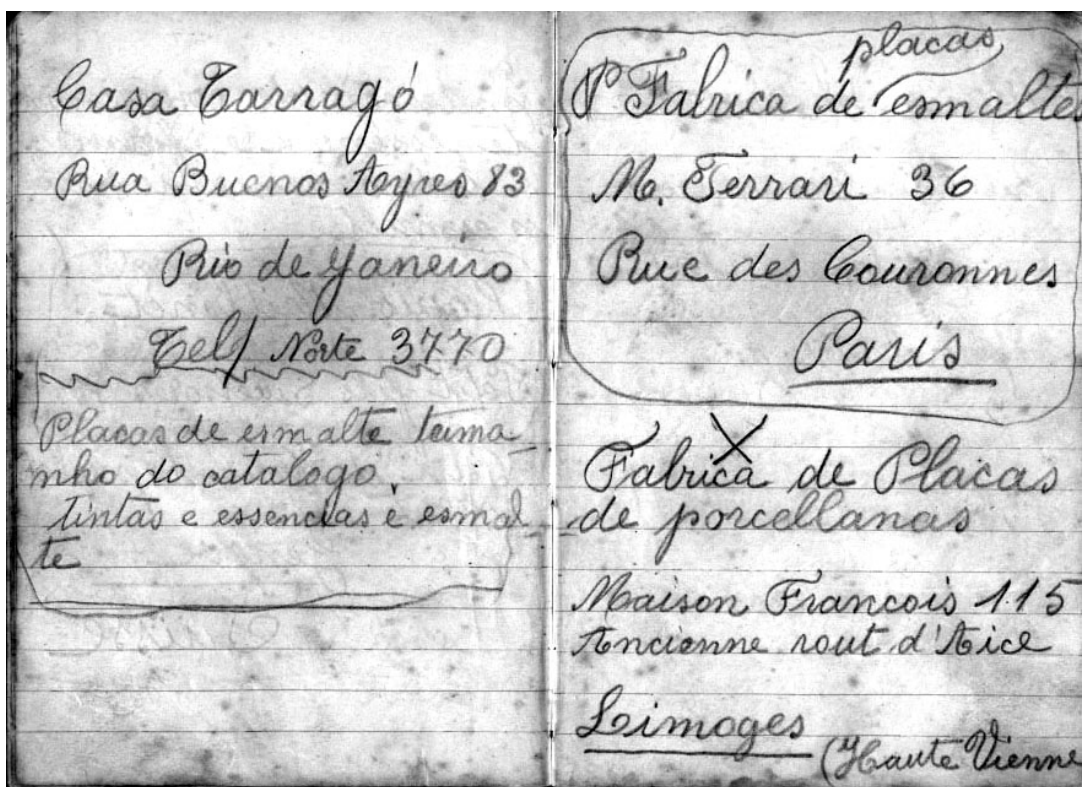 Casa Tarragó
Rua Buenos Ayres 83
Rio de Janeiro
Tel/ Norte 3770
Placas de esmalte tama_
nho do catalogo.
tintas e essencias e esmal_
te
placas
P Fabrica de esmaltes
M. Ferrari 36
Rue des Couronnes
Paris
X
Fabrica de Placas
de porcellanas
Maison Francois 115
Ancienne rout d'Aice
Limoges
(Haute Vienne